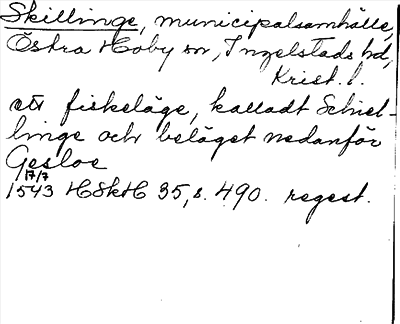 Skillinge, municipalsamhälle,
Östra Hoby sn, Ingelstads hd,
Krist. l.
ett fiskeläge, kalladt Schiel-
linge och beläget nedanför
Gesloe
17/7
1543 HSkH 35, s. 490. regest.